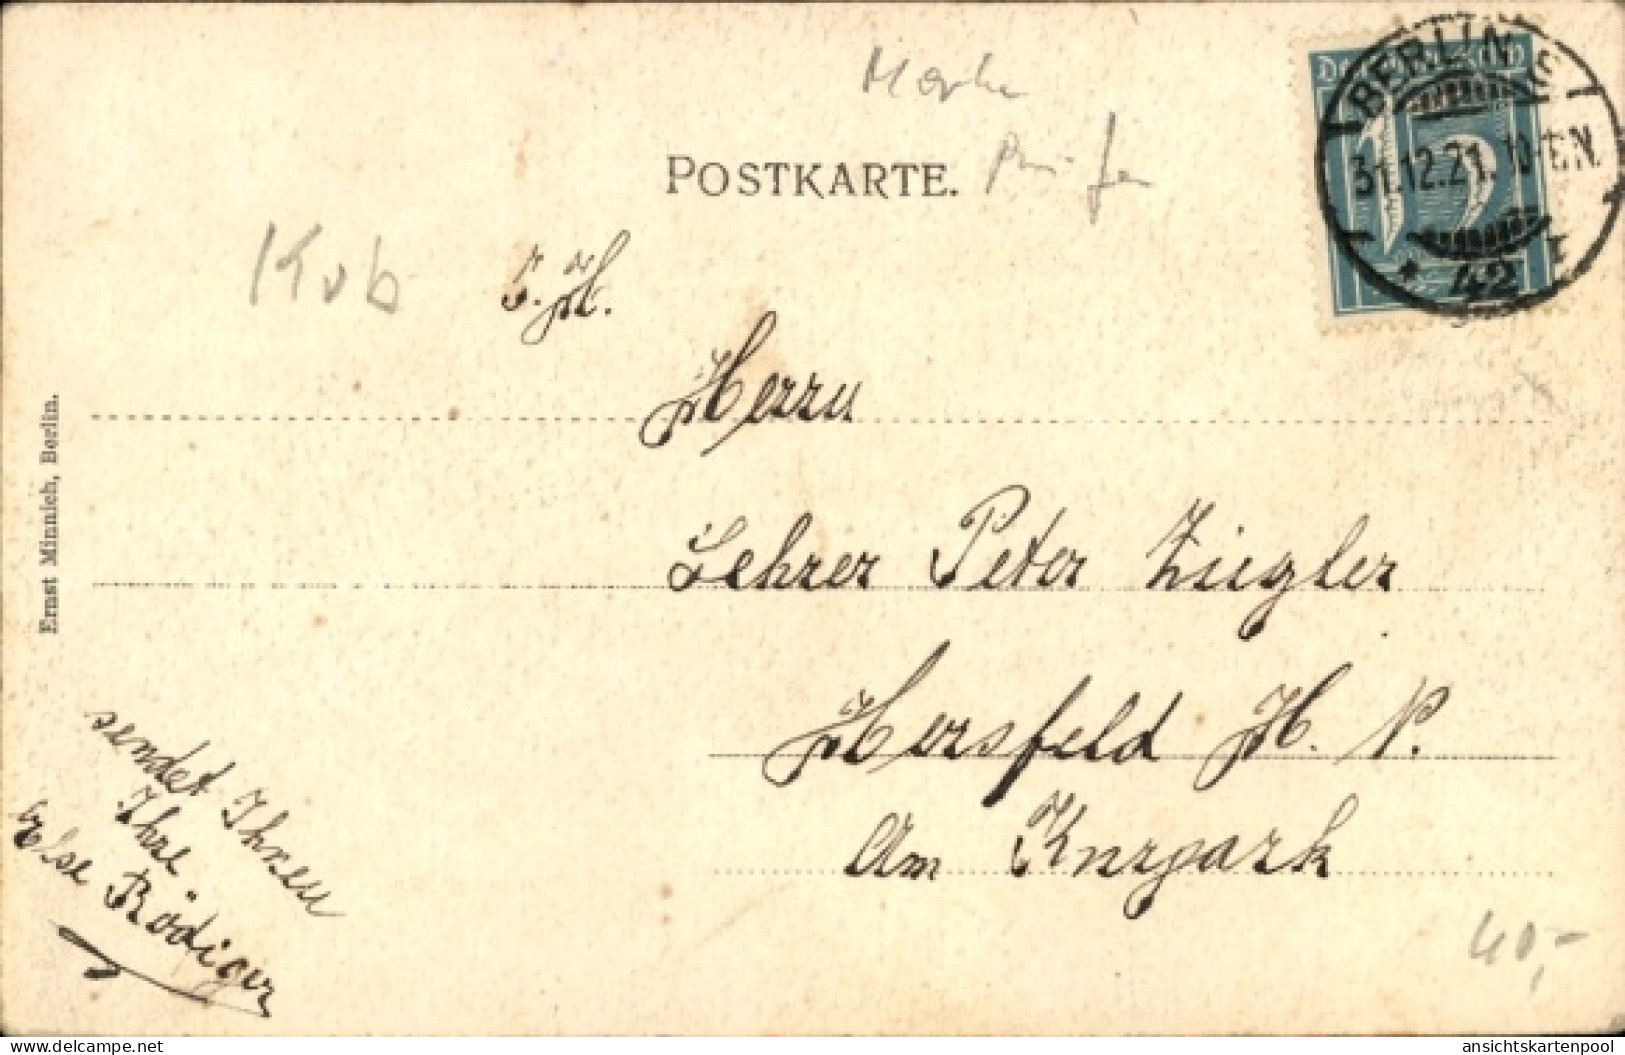 Marke
Prüfen
POSTKARTE.
Deutsches Reich
15
BERLIN S
31.12.21. 10-11N.
* 42 r
Kub
S. H.
Herrn
Lehrer Peter Ziegler
Hersfeld H. N.
Am Kurpark
Ernst Minnich, Berlin.
sendet Ihnen
Ihre
Else Rödiger
40,-
delcampe.net
ansichtskartenpool